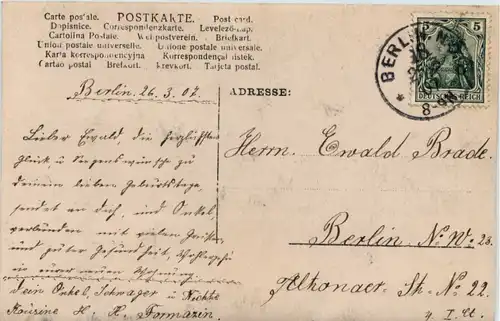 Carte postale. POSTKARTE. Post card.
Dopisnice. Correspondenzkarte. Levelező-Lap.
Cartolina Postale. Weltpostverein. Briefkort.
Union postale universelle. Unione postale universale.
Karta korrespondencyjna Korrespondenční lístek.
Cartao postal Brefkort. Brevkort. Tarjeta postal.
BERLIN N.W.
8-9N
5 5
DEUTSCHES REICH
Berlin. 26.3.07.
ADRESSE:
Lieber Ewald, die herzlichsten
Glück u Segenswünsche zu
deinem lieben Geburtstage
sendet an dich, und Onkel,
verbunden mit vielen
und guter Gesundheit,
in eurer neuen Wohnung.
dein Onkel, Schwager u Nichte
H. H. Formazin
Herrn. Ewald Brade.
Berlin N.W. 23.
Altonaer-Str. No. 22.
4 I.